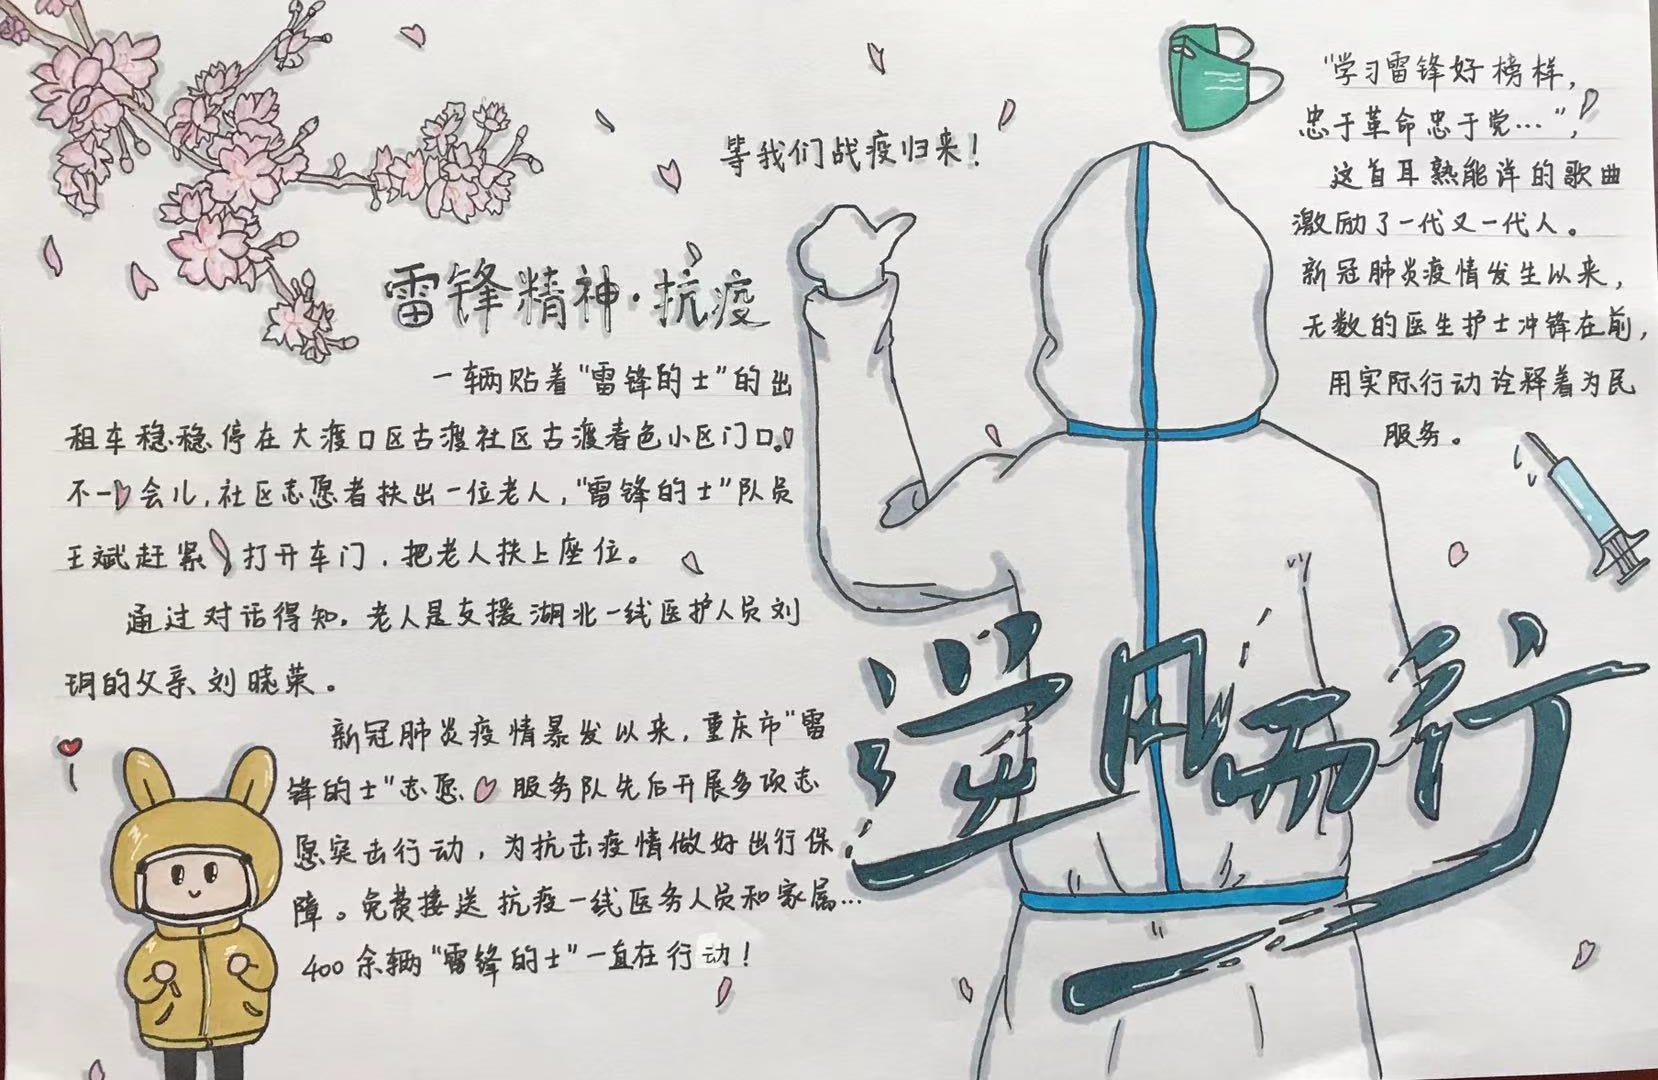 等我们战疫归来！
雷锋精神·抗疫
一辆贴着“雷锋的士”的出
租车稳稳停在大渡口区古渡社区古渡春色小区门口。
不一会儿，社区志愿者扶出一位老人，“雷锋的士”队员
王斌赶紧打开车门，把老人扶上座位。
通过对话得知，老人是支援湖北一线医护人员刘
玥的父亲刘晓荣。
新冠肺炎疫情暴发以来，重庆市“雷
锋的士”志愿服务队先后开展多项志
愿突击行动，为抗击疫情做好出行保
障。免费接送抗疫一线医务人员和家属…
400余辆“雷锋的士”一直在行动！
“学习雷锋好榜样，
忠于革命忠于党…”，
这首耳熟能详的歌曲
激励了一代又一代人。
新冠肺炎疫情发生以来，
无数的医生护士冲锋在前，
用实际行动诠释着为民
服务。
逆风而行